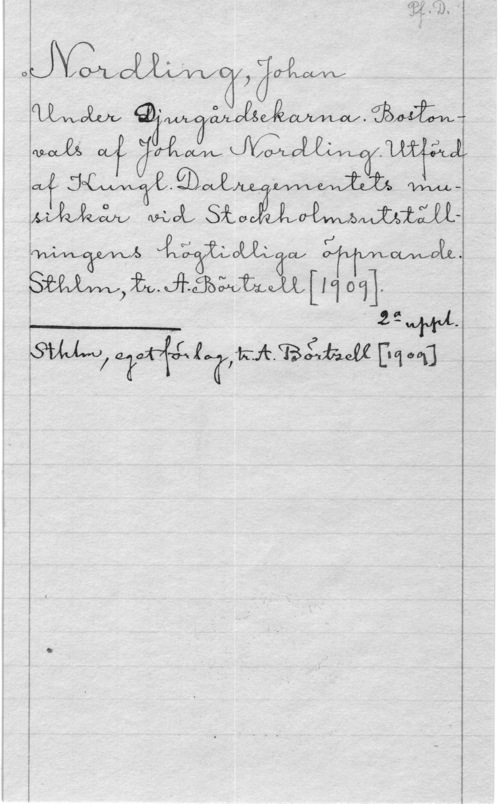 Pf. D.
Nordling, Johan
Under Djurgårdsekarna. Boston-
vals af Johan Nordling. Utförd
af Kungl. Dalregementets mu-
sikkår vid Stockholmsutställ-
ningens högtidliga öppnande.
Sthlm, tr. A. Börtzell [1909].
2a uppl.
Sthlm, eget förlag, tr. A. Börtzell [1909]